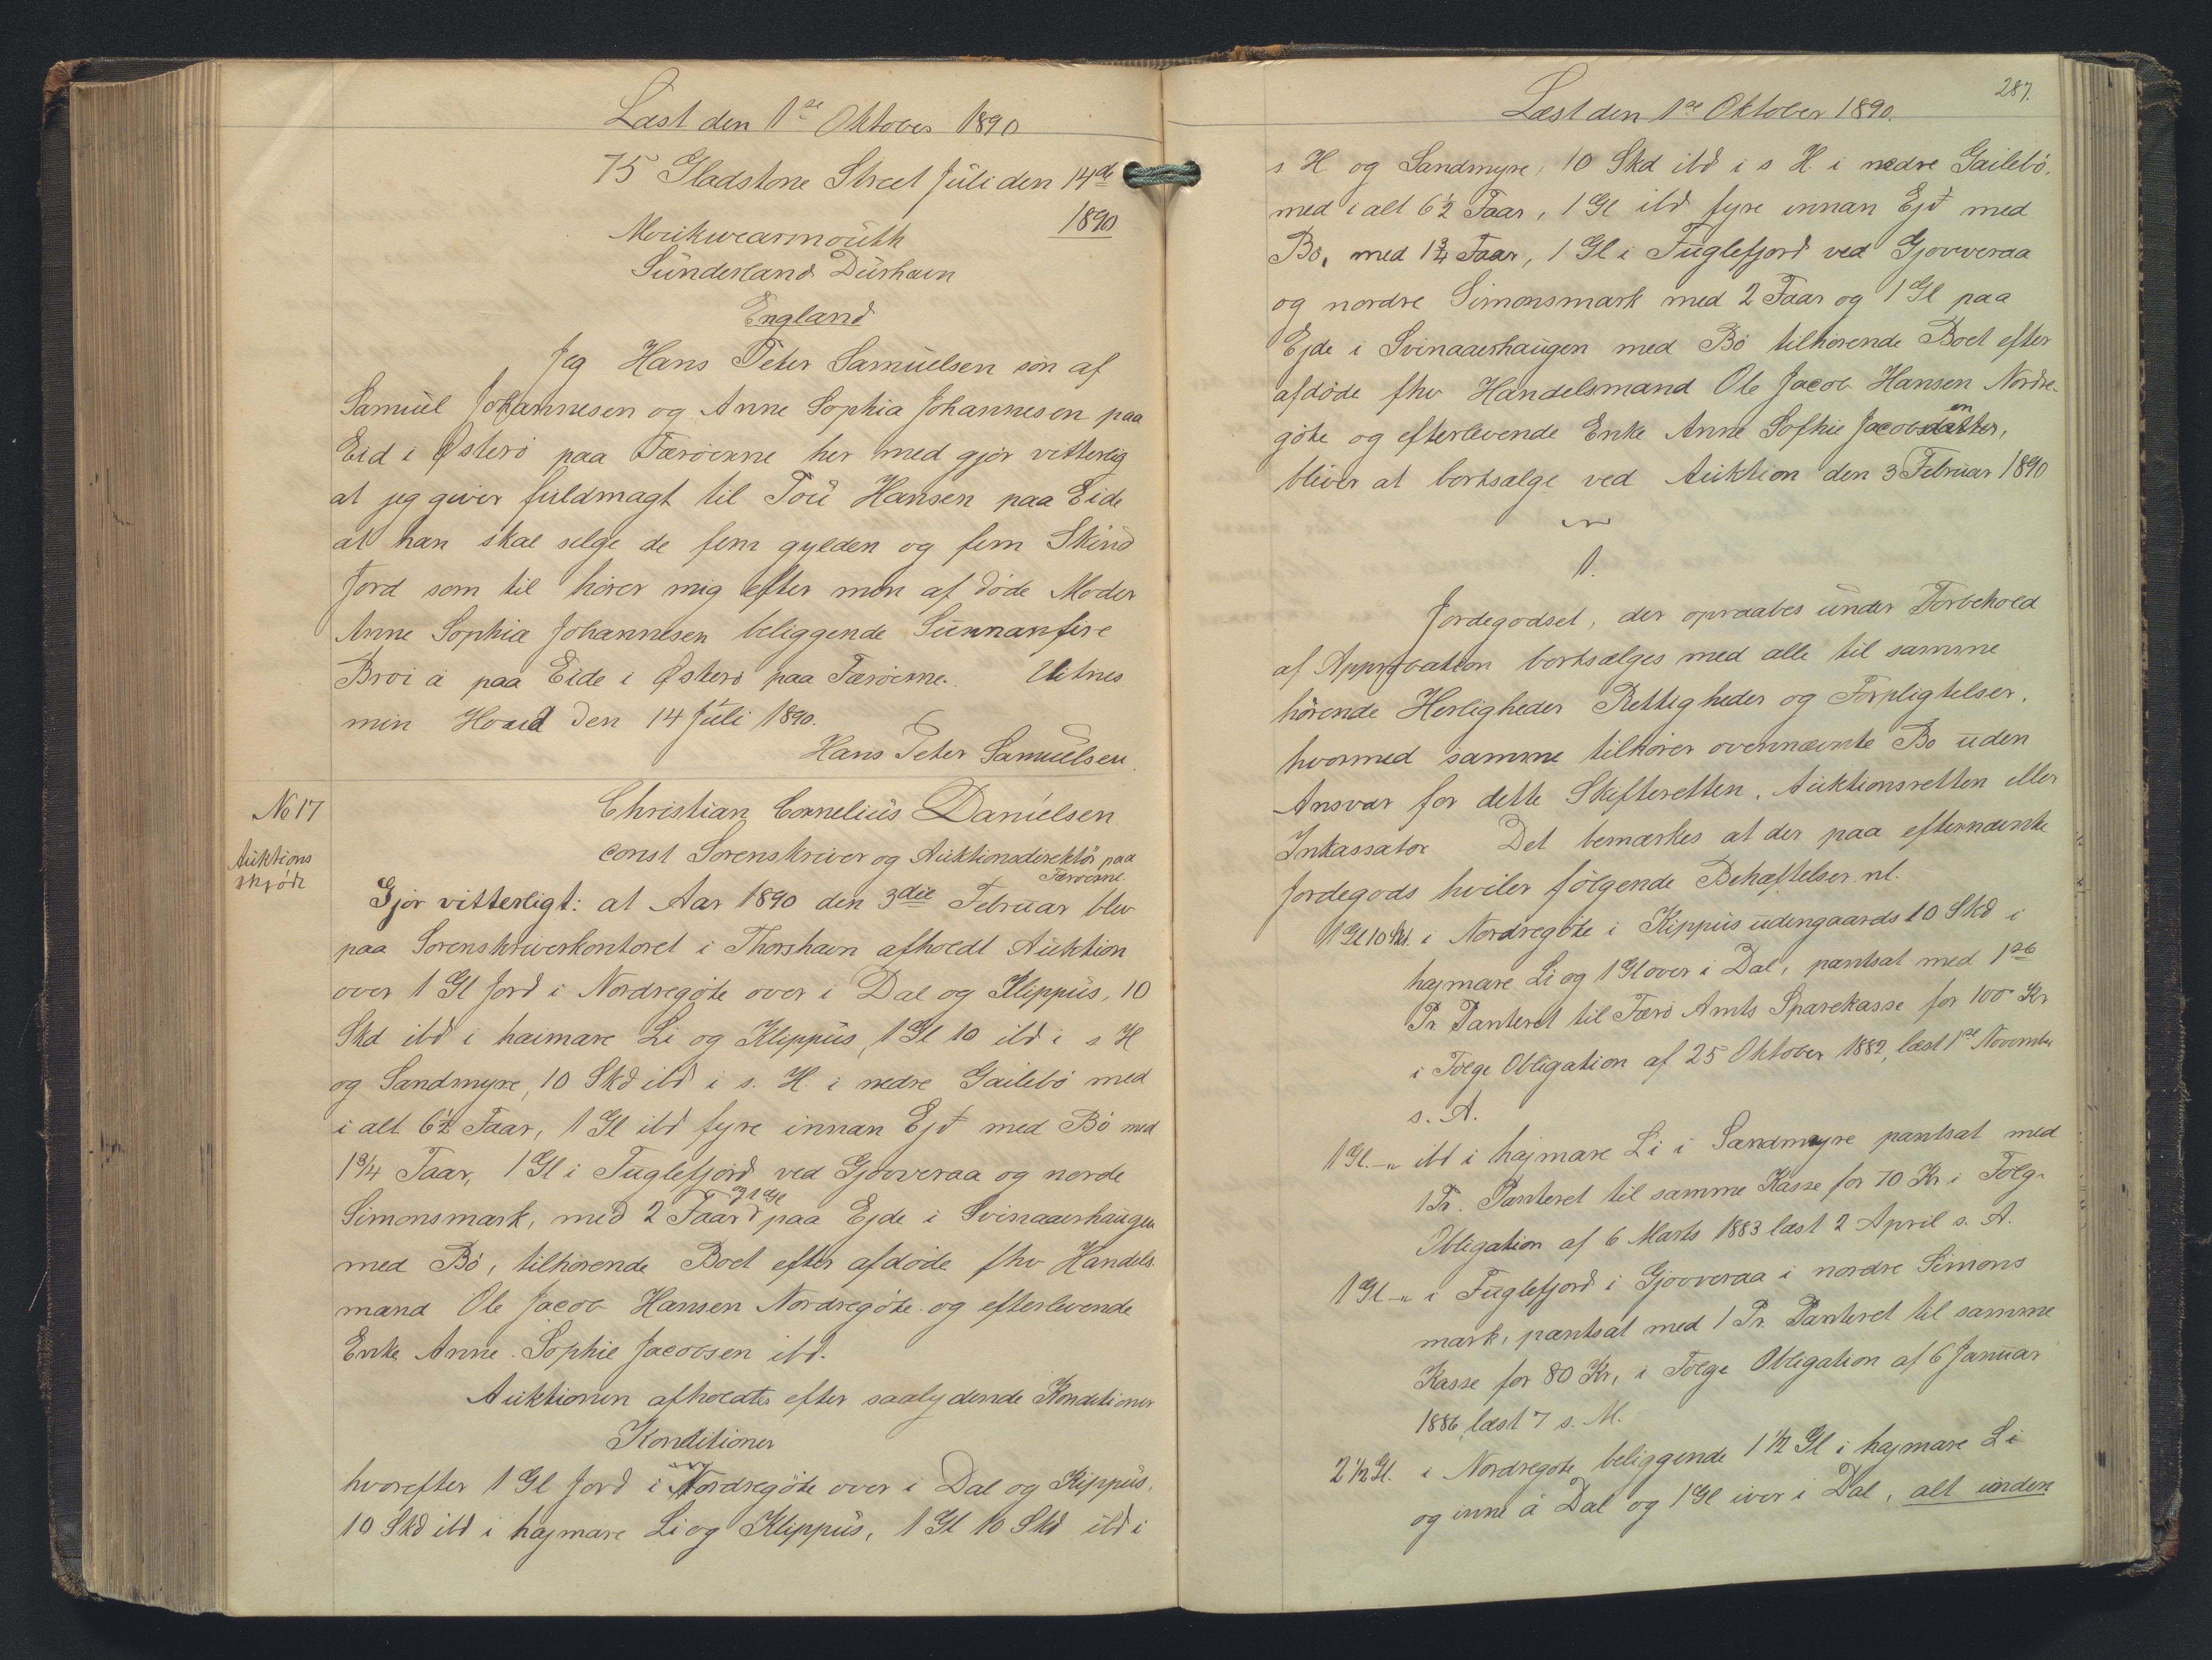 Læst den 1ste Oktober 1890
75 Gladstone Street Juli den 14de
1890
Monkwearmouth
Sunderland Durham
England
Jeg Hans Peter Samuelsen søn af
Samuel Johannesen og Anne Sophia Johannesen paa
Eid i Østerø paa Færøerne her med gjør vitterlig
at jeg giver fuldmagt til Tou Hansen paa Eide
at han skal selge de fem gylden og fem Skind
Jord som til hører mig efter min af døde Moder
Anne Sophia Johannesen beliggende Sunnanfire
Broi á paa Eide i Østerø paa Færøerne. Vitnes
min Haand den 14 Juli 1890.
Hans Peter Samuelsen.
No 17
Auktions
skjøde
Christian Cornelius Danielsen
const Sorenskriver og Auktionsdirektør paa
Færøerne
Gjør vitterligt: at Aar 1890 den 3die Februar blev
paa Sorenskriverkontoret i Thorshavn afholdt Auktion
over 1 Gl Jord i Nordregøte over i Dal og Klippus, 10
Skd ibd i haimare Li og Klippus, 1 Gl 10 ibd i s H
og Sandmyre, 10 Skd ibd i s. H. i nedre Gailebø med
i alt 6½ Faar, 1 Gl ibd fyre innan Ejd med Bø med
1 3/4 Faar, 1 Gl i Fuglefjord ved Gjovveraa og norde
Simonsmark, med 2 Faar og 1 Gl paa Ejde i Svinaaerhaugen
med Bø, tilhørende Boet efter afdøde fhv Handels
mand Ole Jacob Hansen Nordregøte og efterlevende
Enke Anne Sophie Jacobsen ibd.
Auktionen afholdtes efter saalydende Konditioner
Konditioner
hvorefter 1 Gl Jord i Nordregøte over i Dal og Kippus,
10 Skd ibd i hajmare Li og Klippus, 1 Gl 10 Skd ibd i
287.
Læst den 1ste Oktober 1890.
s H. og Sandmyre, 10 Skd ibd i s H. i nedre Gailebø,
med i alt 6½ Faar, 1 Gl ibd fyre innan Ejd med
Bø, med 1¾ Faar, 1 Gl i Fuglefjord ved Gjovveraa
og nordre Simonsmark med 2 Faar og 1 Gl paa
Ejde i Svinaaerhaugen med Bø tilhørende Boet efter
afdøde fhv Handelsmand Ole Jacob Hansen Nordre-
gøte og efterlevende Enke Anne Sofhie Jacobsen,
bliver at bortsælge ved Auktion den 3 Februar 1890
1.
Jordegodset, der opraabes under Forbehold
af Approbation bortsælges med alle til samme
hørende Herligheder Rettigheder og Forpligtelser,
hvormed samme tilhører ovennævnte Bo uden
Ansvar for dette Skifteretten, Auktionsretten eller
Inkassator Det bemærkes at der paa efternævnte
Jordegods hviler følgende Behæftelser nl.
1 Gl 10 Skd. i Nordregøte i Kippus udengaards 10 Skd i
hajmare Li og 1 Gl over i Dal, pantsat med 1ste
Pr. Panteret til Færø Amts Sparekasse for 100 Kr
i Følge Obligation af 25 Oktober 1882, læst 1ste November
s. A.
1 Gl. - " ibd i hajmare Li i Sandmyre pantsat med
1 Pr. Panteret til samme Kasse for 70 Kr i Følge
Obligation af 6 Marts 1883 læst 2 April s. A.
1 Gl - " i Fuglefjord i Gjovveraa i nordre Simons
mark, pantsat med 1 Pr. Panteret til samme
Kasse for 80 Kr, i Følge Obligation af 6 Januar
1886 læst 7 s. M.
2 1/2 Gl. i Nordregøte beliggende 1 1/2 Gl i hajmare Li
og inne á Dal og 1 Gl iver i Dal, alt inden